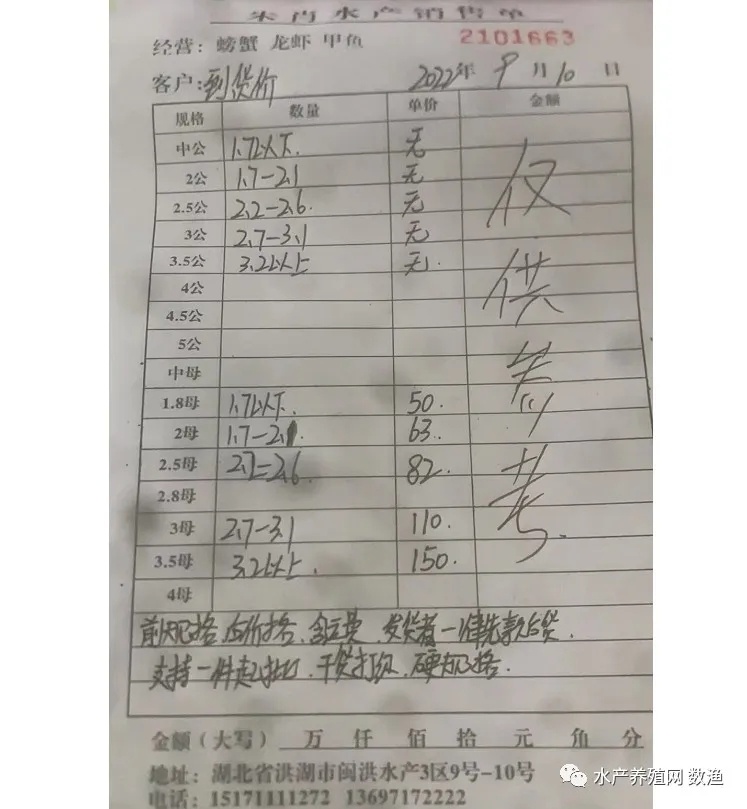 朱肖水产销售单
经营: 螃蟹 龙虾 甲鱼 2101663
客户: 到货价 2022年 9月10日
规格 数量 单价 金额
中公 1.7以下. 无
2公 1.7-2.1 无
2.5公 2.2-2.6. 无
3公 2.7-3.1 无
3.5公 3.2以上 无.
4公
4.5公
5公
中母
1.8母 1.7以下. 50.
2母 1.7-2.1 63.
2.5母 2.2-2.6. 82.
2.8母
3母 2.7-3.1 110.
3.5母 3.2以上. 150.
4母
仅供参考
发货者一律先款后货.
支持一件起批. 干货打包. 硬规格.
金额(大写) 万 仟 佰 拾 元 角 分
地址: 湖北省洪湖市闽洪水产3区9号-10号
电话: 15171111272 13697172222
水产养殖网 数渔